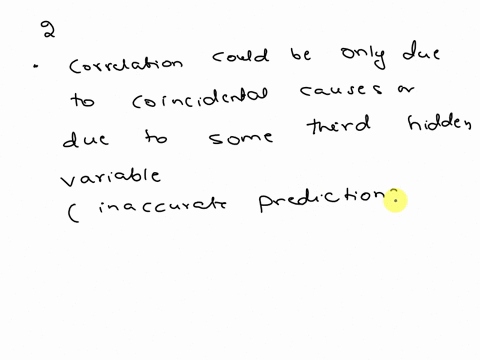 2
. Correlation could be only due
to coincidental causes or
due to some third hidden
variable
( inaccurate prediction